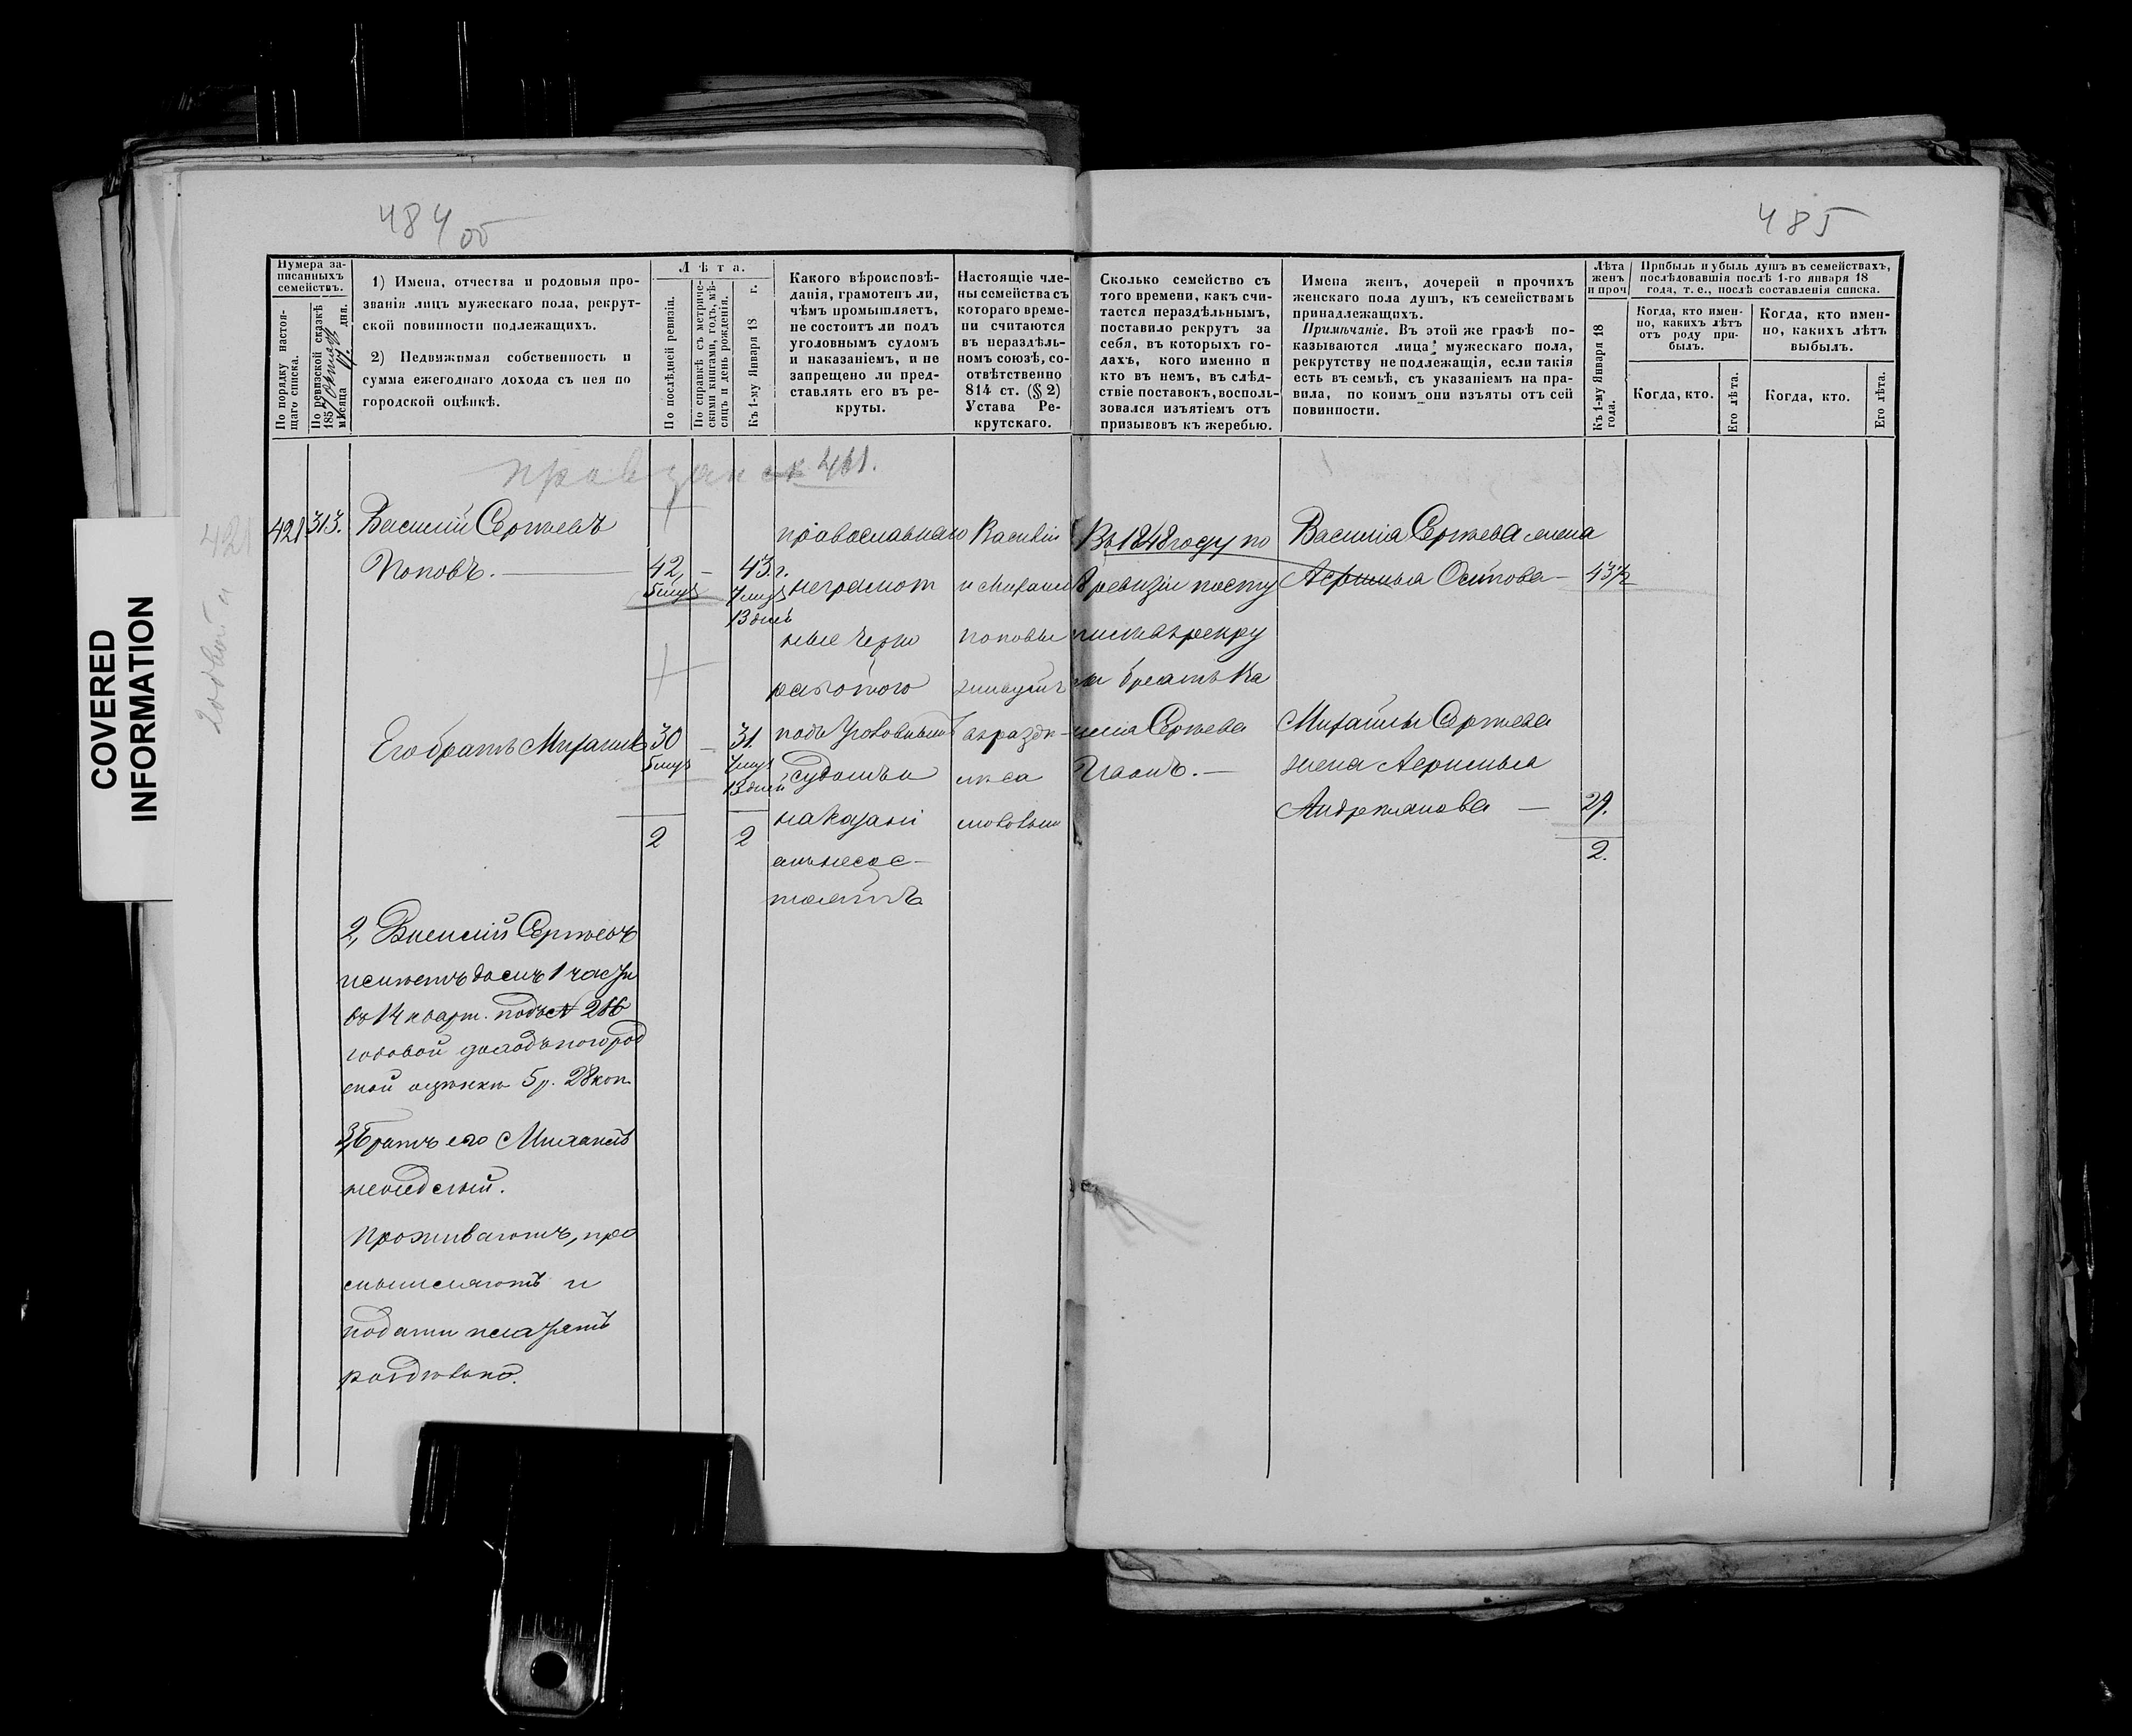 484 об
485
COVERED
INFORMATION
Нумера за-
писанныхъ
семействъ.
По порядку настоя-
щаго списка.
По ревизской сказкѣ
1857
мѣсяца дня.
1) Имена, отчества и родовыя про-
званія лицъ мужескаго пола, рекрут-
ской повинности подлежащихъ.
2) Недвижимая собственность и
сумма ежегоднаго дохода съ нея по
городской оцѣнкѣ.
Лѣта.
По послѣдней ревизіи.
По справкѣ съ метриче-
скими книгами, годъ, мѣ-
сяцъ и день рожденія.
Къ 1-му Января 18 г.
Какого вѣроисповѣ-
данія, грамотенъ ли,
чѣмъ промышляетъ,
не состоитъ ли подъ
уголовнымъ судомъ
и наказаніемъ, и не
запрещено ли пред-
ставлять его въ ре-
круты.
Настоящіе чле-
ны семейства съ
котораго време-
ни считаются
въ нераздѣль-
номъ союзѣ, со-
отвѣтственно
814 ст. (§ 2)
Устава Ре-
крутскаго.
Сколько семейство съ
того времени, какъ счи-
тается нераздѣльнымъ,
поставило рекрутъ за
себя, въ которыхъ го-
дахъ, кого именно и
кто въ немъ, въ слѣд-
ствіе поставокъ, восполь-
зовался изъятіемъ отъ
призывовъ къ жеребью.
Имена женъ, дочерей и прочихъ
женскаго пола душъ, къ семействамъ
принадлежащихъ.
Примѣчаніе. Въ этой же графѣ по-
казываются лица мужескаго пола,
рекрутству не подлежащія, если такія
есть въ семьѣ, съ указаніемъ на пра-
вила, по коимъ они изъяты отъ сей
повинности.
Лѣта
женъ
и проч
Къ 1-му Января 18
года.
Прибыль и убыль душъ въ семействахъ,
послѣдовавшія послѣ 1-го января 18
года, т. е., послѣ составленія списка.
Когда, кто имен-
но, какихъ лѣтъ
отъ роду при-
былъ.
Когда, кто имен-
но, какихъ лѣтъ
выбылъ.
Когда, кто.
Его лѣта.
Когда, кто.
Его лѣта.
421
421 313. Василій Сергѣевъ
Поповъ.
42
5 мцъ
43 г.
7 мцъ
13 дней
Его братъ Михаилъ
30
5 мцъ
31
7 мцъ
13 дней
2
2
православнаго
неграмот
ные черно
работого
подъ уголовнымъ
судомъ и
наказані
емъ не сос-
тоятъ
Василій
и Михаилъ
Поповы
живутъ
въ раздѣ-
лѣ са
мовольно
Въ 1848 году по
8 ревизіи посту
пилъ въ рекру
ты братъ Ва
силія Сергѣева
Иванъ.
Василія Сергѣева жена
Осипова 43½
Михайлы Сергѣева
жена
Андреянова 29.
2.
2, Василій Сергѣевъ
имѣетъ домъ 1 части
въ 14 кварт. подъ N 286
годовой доходъ по город
ской оцѣнкѣ 5 р. 28 коп
3, Братъ его Михаилъ
Проживаютъ, про
мышляютъ и
подати платятъ
роздѣльно.